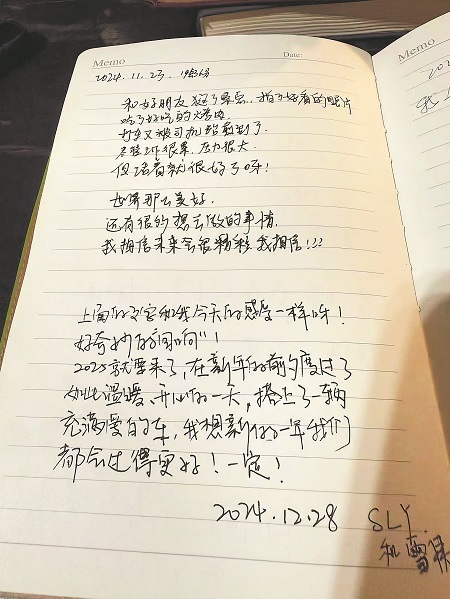 Memo
Date:
2024.11.23.
和好朋友逛了景点,拍了好看的照片
吃了好吃的烤肉
打车又被司机给感动了
尽管工作很累,压力很大
但活着就很好了呀!
世界那么美好.
还有很多想去做的事情.
我相信未来会很精彩 我相信!!!
上面的客人和我今天的感受一样呀!
好奇妙的"同响"!
2025就要来了,在新年的前夕度过了
如此温暖、开心的一天,搭上了一辆
充满爱的车,我想新的一年我们
都会过得更好!一定!
2024.12.28 SLY.
和雪
Memo
202
我